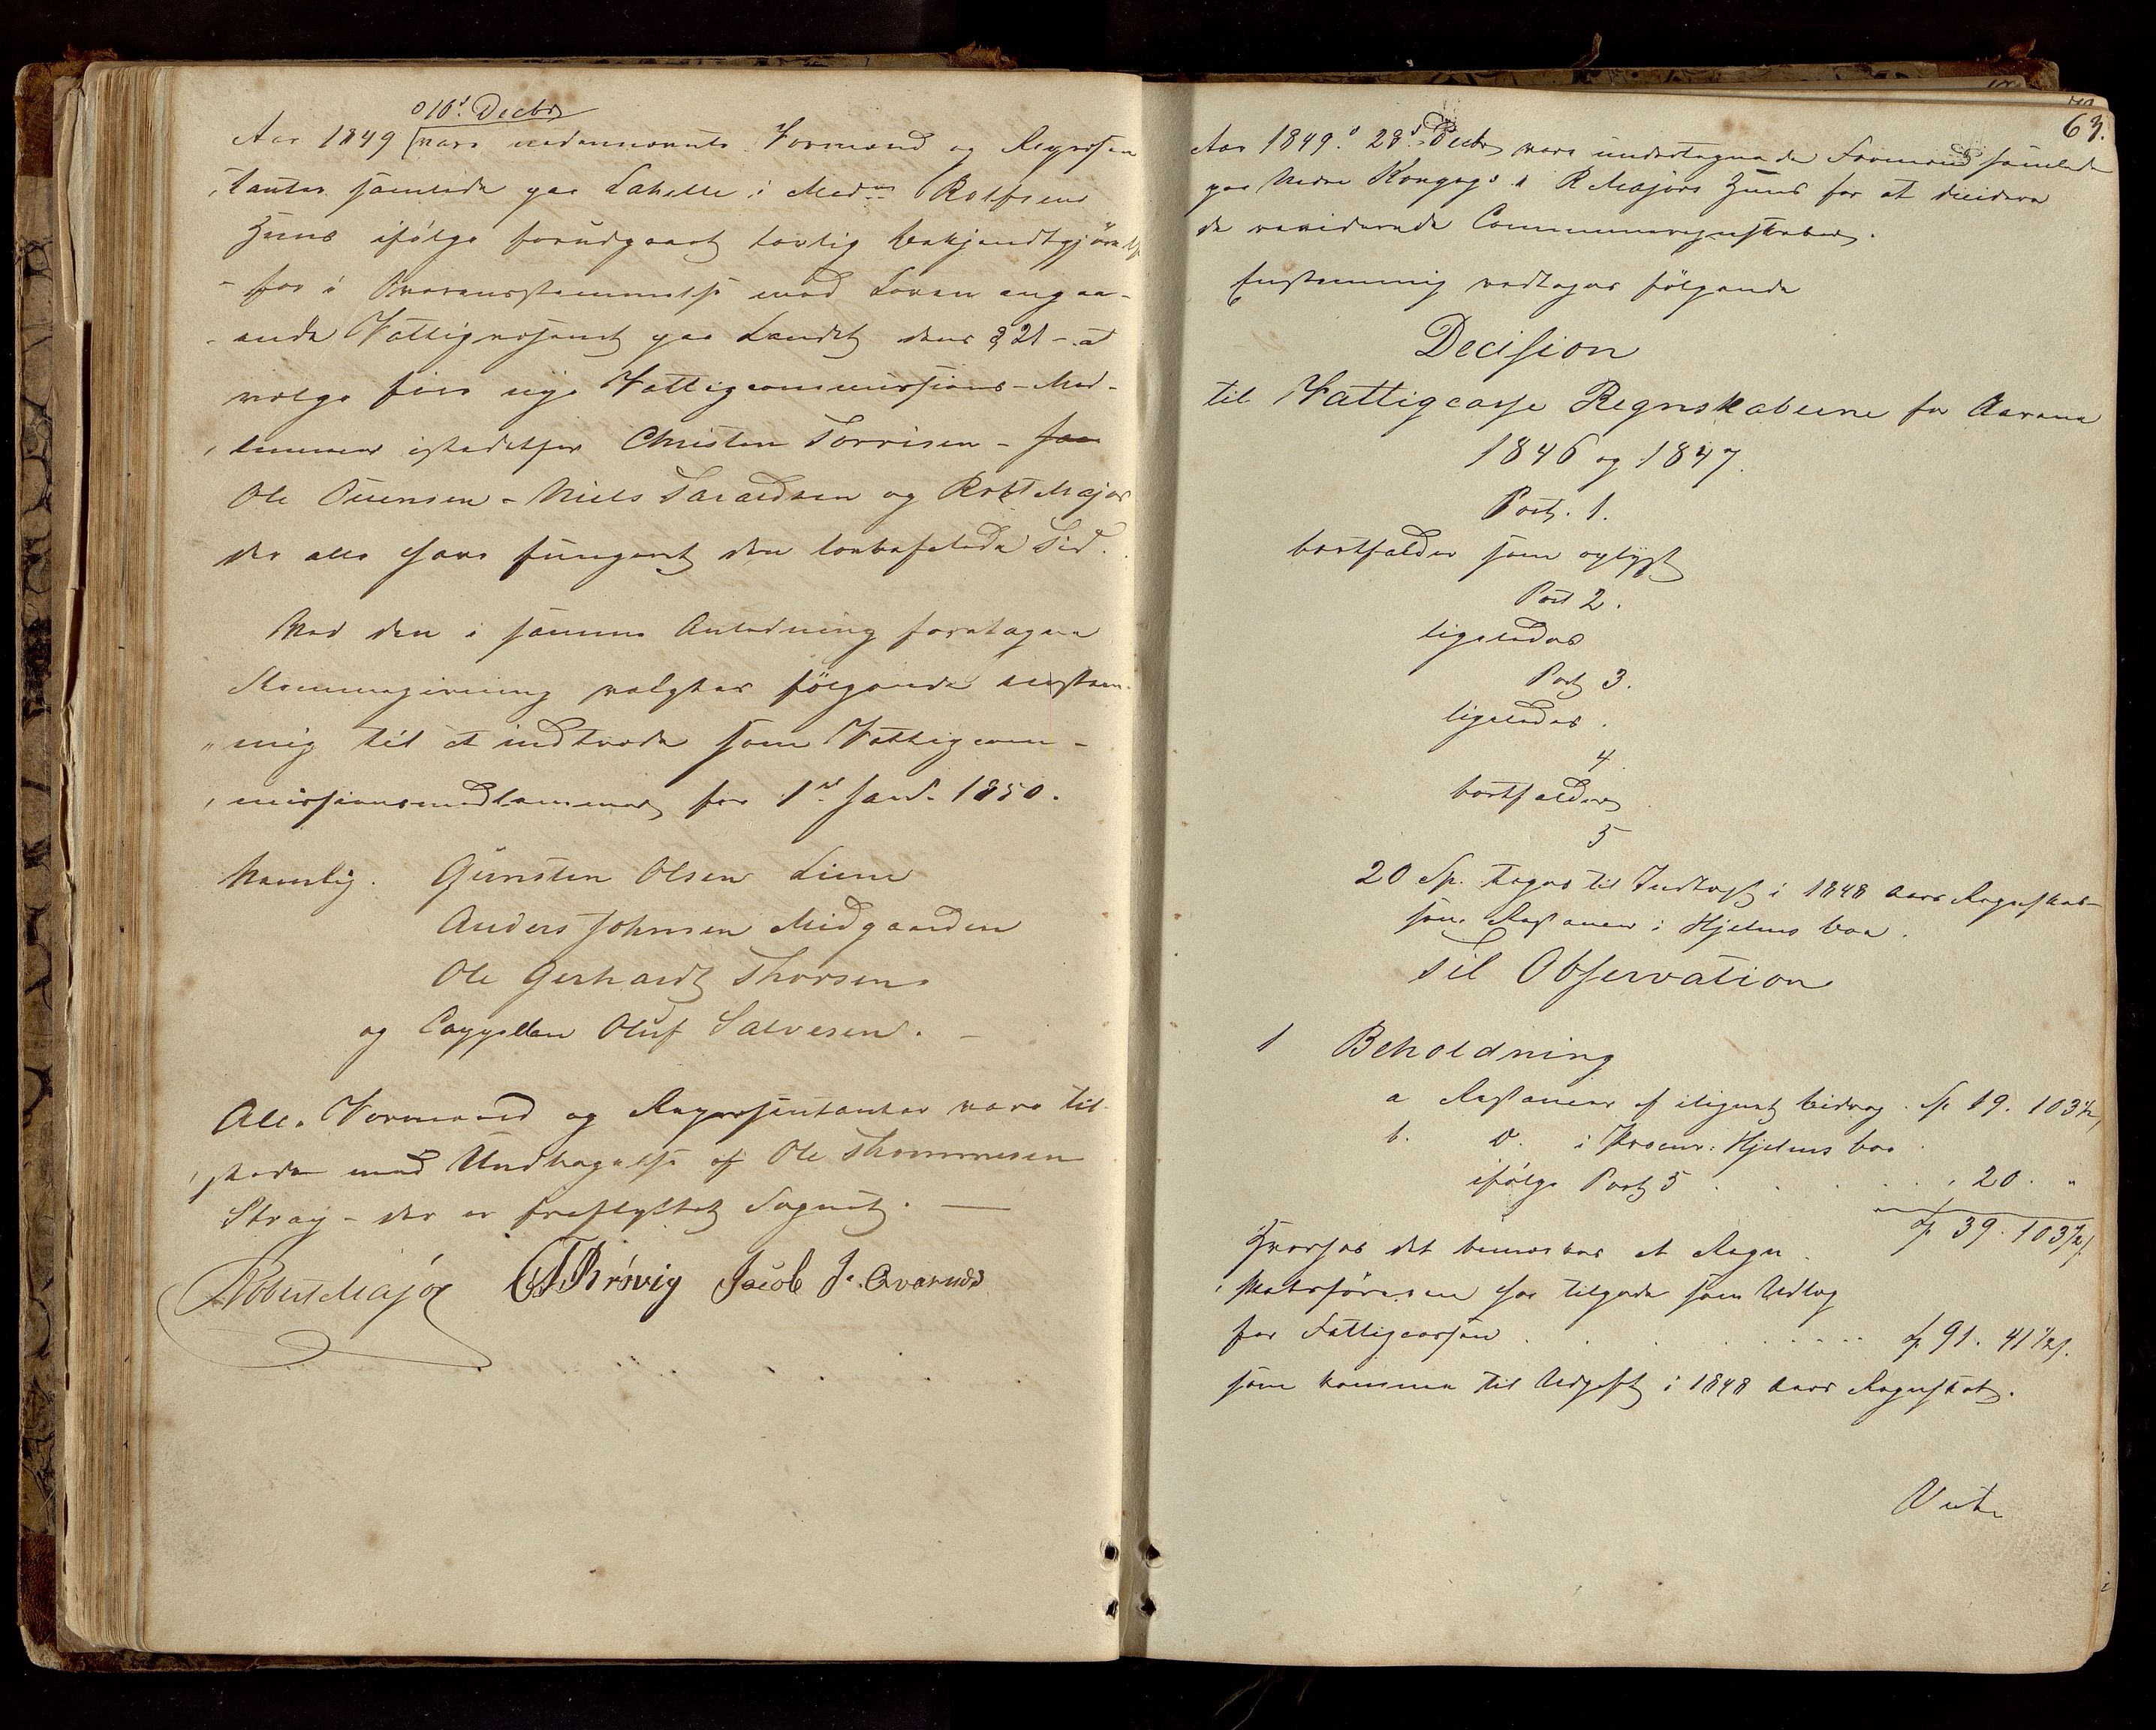 10de Decbr
Aar 1849 vare nedennævnte Formænd og Repræsen
tanter samlede paa Lahelle i Madme Rolfsens
Huus ifølge forudgaaet lovlig bekjendtgjørelse
- for i Overensstemmelse med Loven angaa-
- ende Fattigvæsenet paa Landet dens § 21 - at
vælge fire nye Fattigcommissions-Med-
lemmer istedetfor Christen Torrisen - for
Ole Evensen - Niels Taraldsen og Robt Major
der alle have fungeret den lovbefalede Tid.
Med den i samme Anledning foretagne
Stemmegivning valgtes følgende eenstem-
mig til at indtræde som Fattigcom-
missionsmedlemmer fra 1ste Jan. 1850.
Nemlig. Gunsten Olsen Liene
Anders Johnsen Midgaarden
Ole Gerhardt Thorsen
og Coppelan Oluf Salvesen. -
Alle Formænd og Repræsentanter vare til
stede med Undtagelse af Ole Thommesen
Stray - der er fraflyttet Sognet. -
Robert Major Brøvig Jacob J. Qvarnes
63.
Aar 1849. 28de Decbr vare undertegnede Formænd samlede
paa Nedre Kongsg. i R Majors Huus for at decidere
de reviderede Communeregnskaber.
Eenstemmig vedtoges følgende
Decision
til Fattigcasse Regnskaberne for Aarene
1846 og 1847.
Post. 1.
bortfalder som oplyst
Post 2.
ligeledes
Post 3.
ligeledes.
4
bortfalder
5
20 Sp. tages til Indtægt i 1848 Aars Regnskab
som Restancer i Hjelms boe.
Til Observation
1 Beholdning
a Restancer af ilignet bidrag. Sp 19. 103½
b. Do. i Procur: Hjelms boe
ifølge Post 5 . . . . . 20. "
Sp 39. 103½ s.
Hvorfor det bemærkes at Regn
skabsføreren har tilgode som Udlæg
for Fattigcassen . . . . . Sp 91. 41½ s.
som komme til Udgift i 1848 Aars Regnskab.
Vert